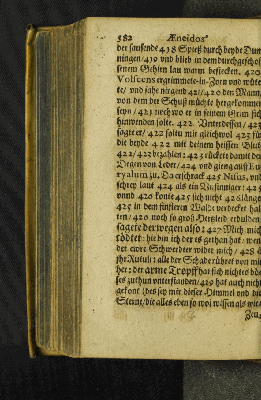 582 Æneidos
der sausende 418 Spieß durch beyde Dun
ningen/419 vnd blieb in dem durchgeschos
senem Gehirn lau warm bestecken. 420
Volscens ergrimmete in Zorn vnd wüte
te/ vnd sahe nirgend 421//420 den Mann/
von dem der Schuß müchte hergekommen
seyn/423 noch wo er in seinem Grim sich
hinwenden solte. 422. Vnterdessen/423
sagte er/422 soltu mir gleichwol 423 für
die beyde 422 mit deinem heissen Blut
422/423 bezahlen: 423 rückete damit den
Degen von Leder/424 vnd gieng auff Eu
ryalum zu, Da erschrack 425 Nisus, vnd
schrey laut 424 als ein Vnsinniger: 425
vnnd 420 konte 425 sich nicht 426 länger
425 in dem finstern Walde verdecket hal
ten/420 noch so groß Hertzleid erdulden
sagete derwegen also: 427 Mich mich
tödtet: hie bin ich der es gethan hat/ wen
det ewre Schwerdter wider mich/428 O
jhr Rutuli: alle der Schade rühret von mir
her: der arme Tropff hat sich nichts bö
ses zuthun vnterstanden/429 hat auch nicht
gekont (des sey mir dieser Himmel vnd die
Sterne/die alles eben so wol wissen als wir/
Zeu,